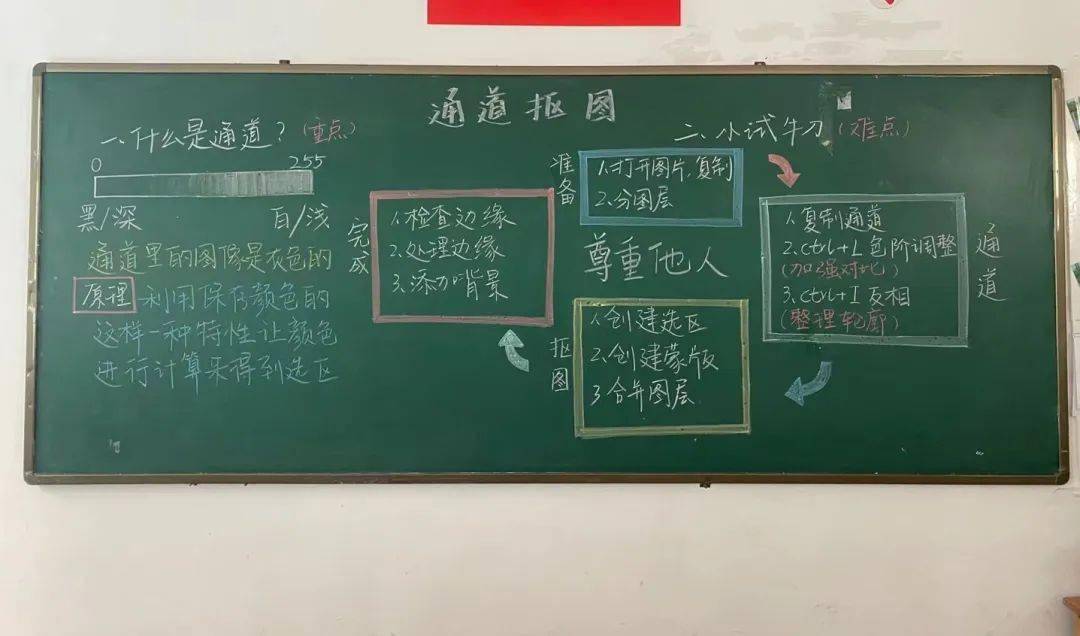 通道抠图
一、什么是通道？(重点)
0 255
黑/深 白/浅
通道里的图像是灰色的
原理 利用保存颜色的
这样一种特性让颜色
进行计算来得到选区
二、小试牛刀(难点)
准备
1.打开图片,复制
2.分图层
通道
1.复制通道
2.ctrl+L色阶调整
(加强对比)
3.ctrl+I反相
(整理轮廓)
抠图
1.创建选区
2.创建蒙版
3合并图层
完成
1.检查边缘
2.处理边缘
3.添加背景
尊重他人